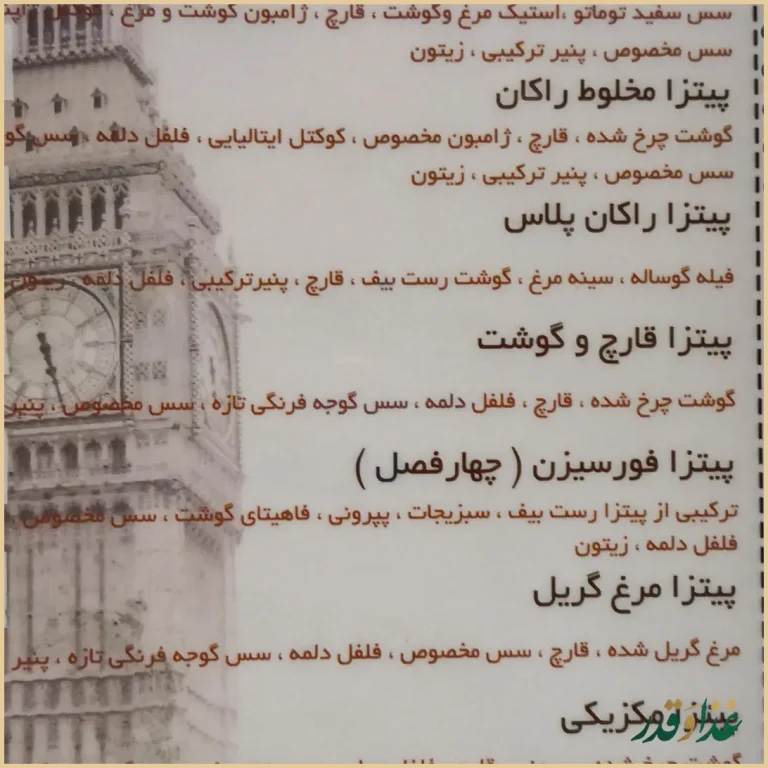 سس سفید توماتو ،استیک مرغ وگوشت ، قارچ ، ژامبون گوشت و مرغ ،
سس مخصوص ، پنیر ترکیبی ، زیتون
پیتزا مخلوط راکان
گوشت چرخ شده ، قارچ ، ژامبون مخصوص ، کوکتل ایتالیایی ، فلفل دلمه ، سس
سس مخصوص ، پنیر ترکیبی ، زیتون
پیتزا راکان پلاس
فیله گوساله ، سینه مرغ ، گوشت رست بیف ، قارچ ، پنیرترکیبی ، فلفل دلمه ، زیتون
پیتزا قارچ و گوشت
گوشت چرخ شده ، قارچ ، فلفل دلمه ، سس گوجه فرنگی تازه ، سس مخصوص ، پنیر
پیتزا فورسیزن ( چهارفصل )
ترکیبی از پیتزا رست بیف ، سبزیجات ، پپرونی ، فاهیتای گوشت ، سس مخصوص ،
فلفل دلمه ، زیتون
پیتزا مرغ گریل
مرغ گریل شده ، قارچ ، سس مخصوص ، فلفل دلمه ، سس گوجه فرنگی تازه ، پنیر
پیتزا مکزیکی
غذا و قدر